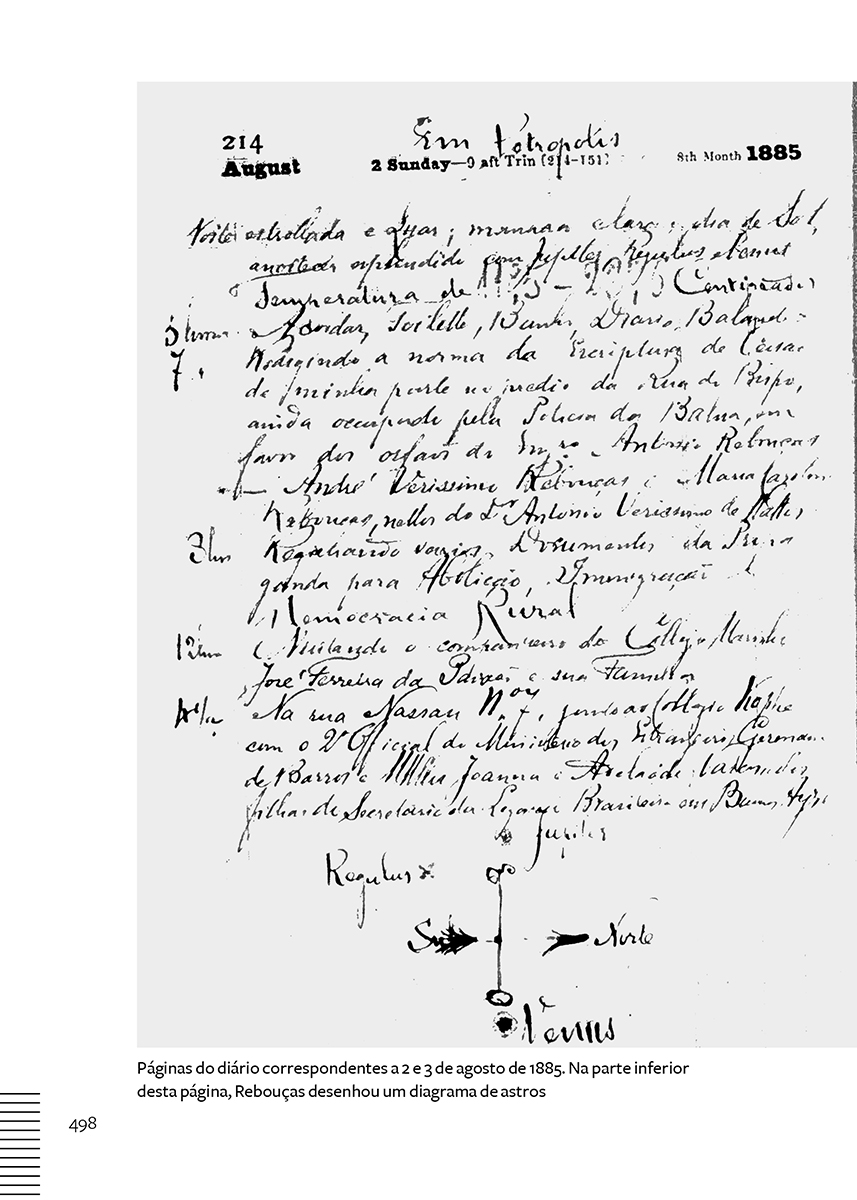 Em Petropolis
214
August
2 Sunday—9 aft Trin (214–151)
8th Month 1885
Noite estrellada e luar; manhãa clara; dia de Sol,
anoitecer esplendido com Jupiter, Regulus e Venus
Temperatura de Centigrados
5 horas Acordar, Toilette, Banho, Diario,
7 " Redigindo a norma da Escriptura de
de minha parte no predio da Rua do Bispo,
ainda occupado pela Policia da Bahia, em
favor dos orfãos do Antonio Rebouças
— André Verissimo Rebouças e Maria Carolina
Rebouças, nettos do Dr Antonio Verissimo de Mattos
3 hrs varios Documentos da Propa
ganda para Abolição, Immigração e
Democracia Rural
12 hrs Visitando o companheiro do Collegio Marinho
José Ferreira da e sua Familia
Na rua Nassau Nº 7, junto ao Collegio
com o 2º Official do Ministerio dos Estrangeiros, Germano
de Barros e Joanna e Adelaide
filhas do Secretario da Legação Brasileira em Buenos Ayres
Jupiter
Regulus
Sul
Norte
Venus
Páginas do diário correspondentes a 2 e 3 de agosto de 1885. Na parte inferior
desta página, Rebouças desenhou um diagrama de astros
498